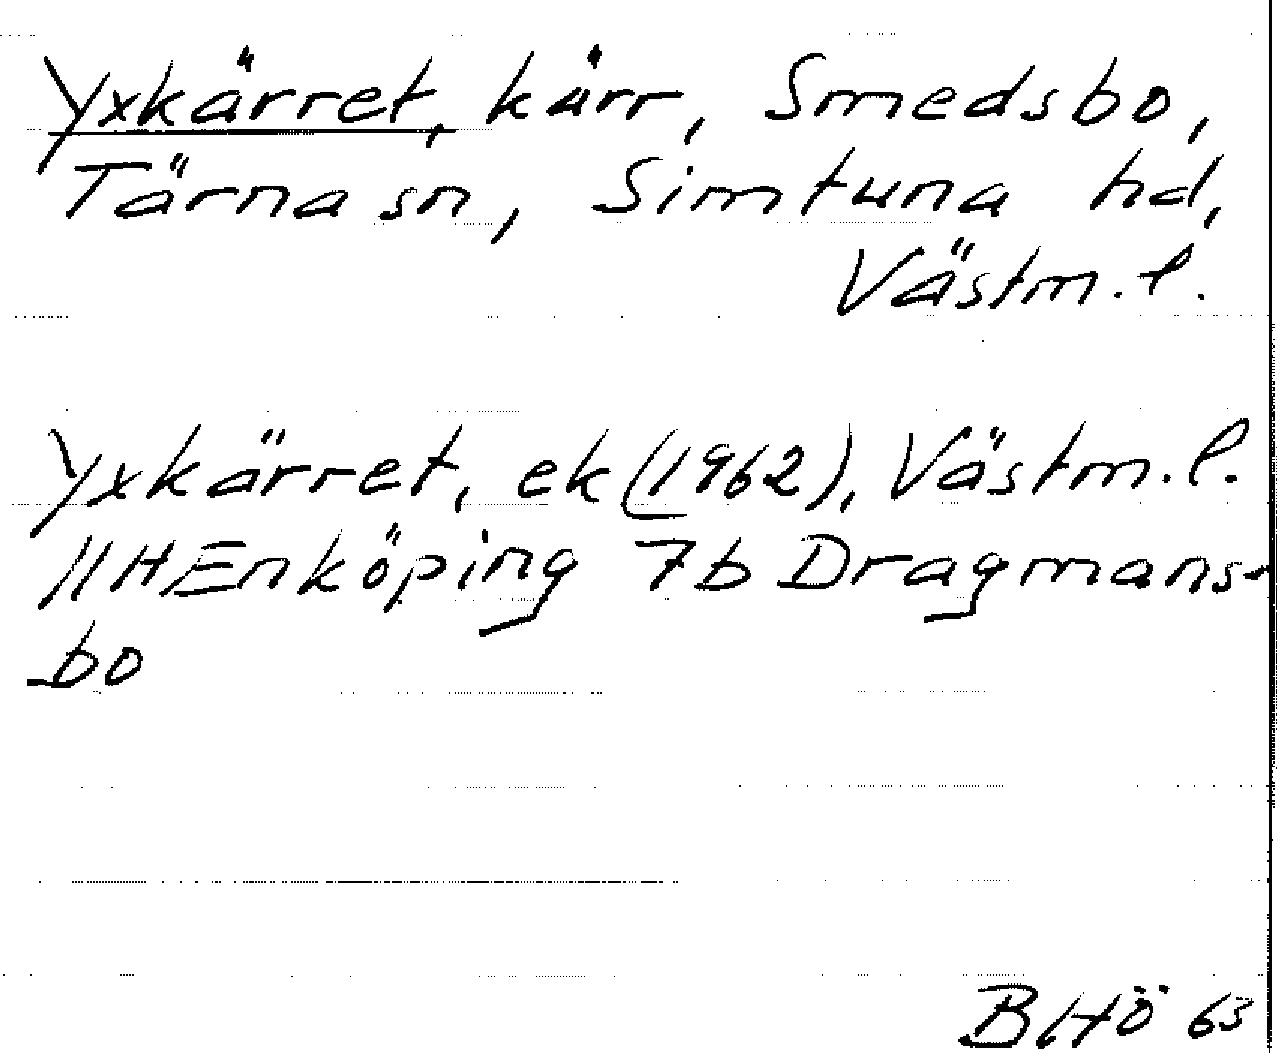 Yxkärret, kärr, Smedsbo,
Tärna sn, Simtuna hd,
Västm. l.
Yxkärret, ek (1962), Västm. l.
11H Enköping 7b Dragmans-
bo
BHÖ 63